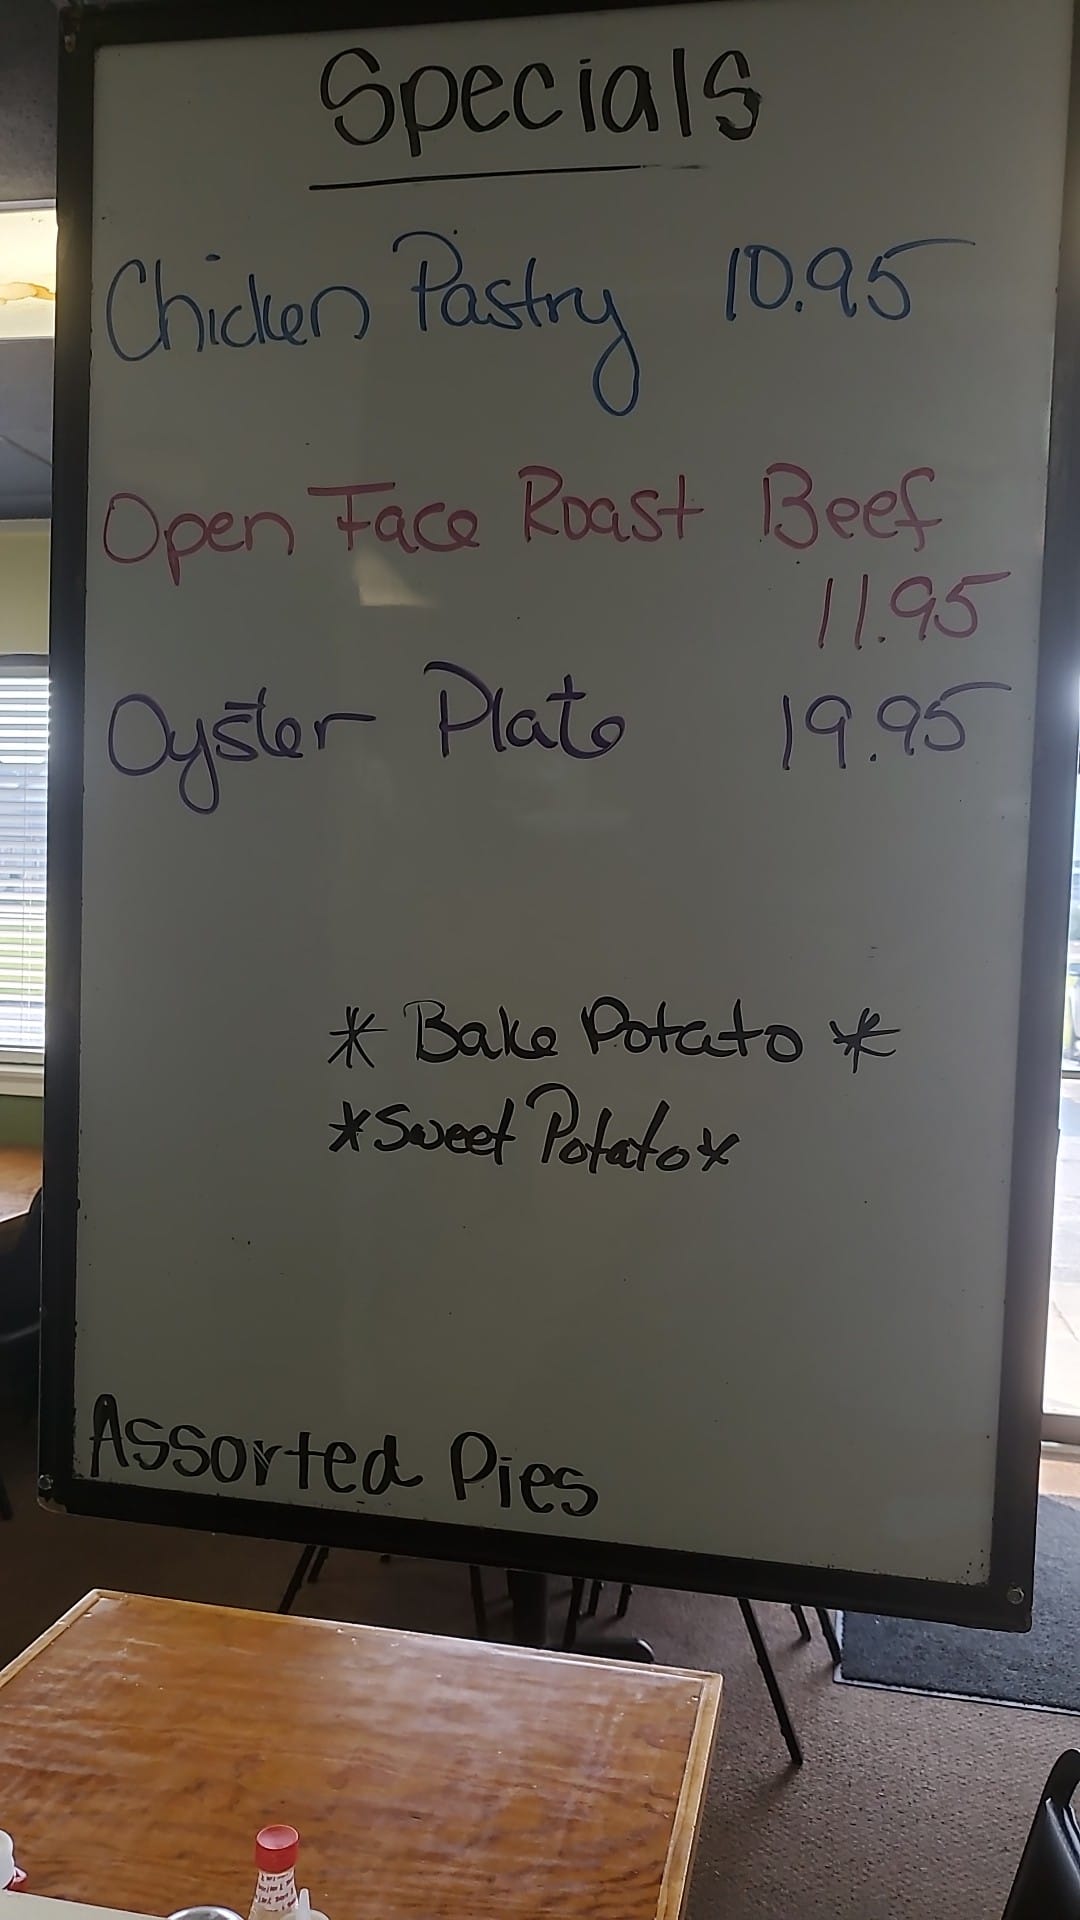 Specials
Chicken Pastry 10.95
Open Face Roast Beef
11.95
Oyster Plate 19.95
* Bake Potato *
*Sweet Potato*
Assorted Pies